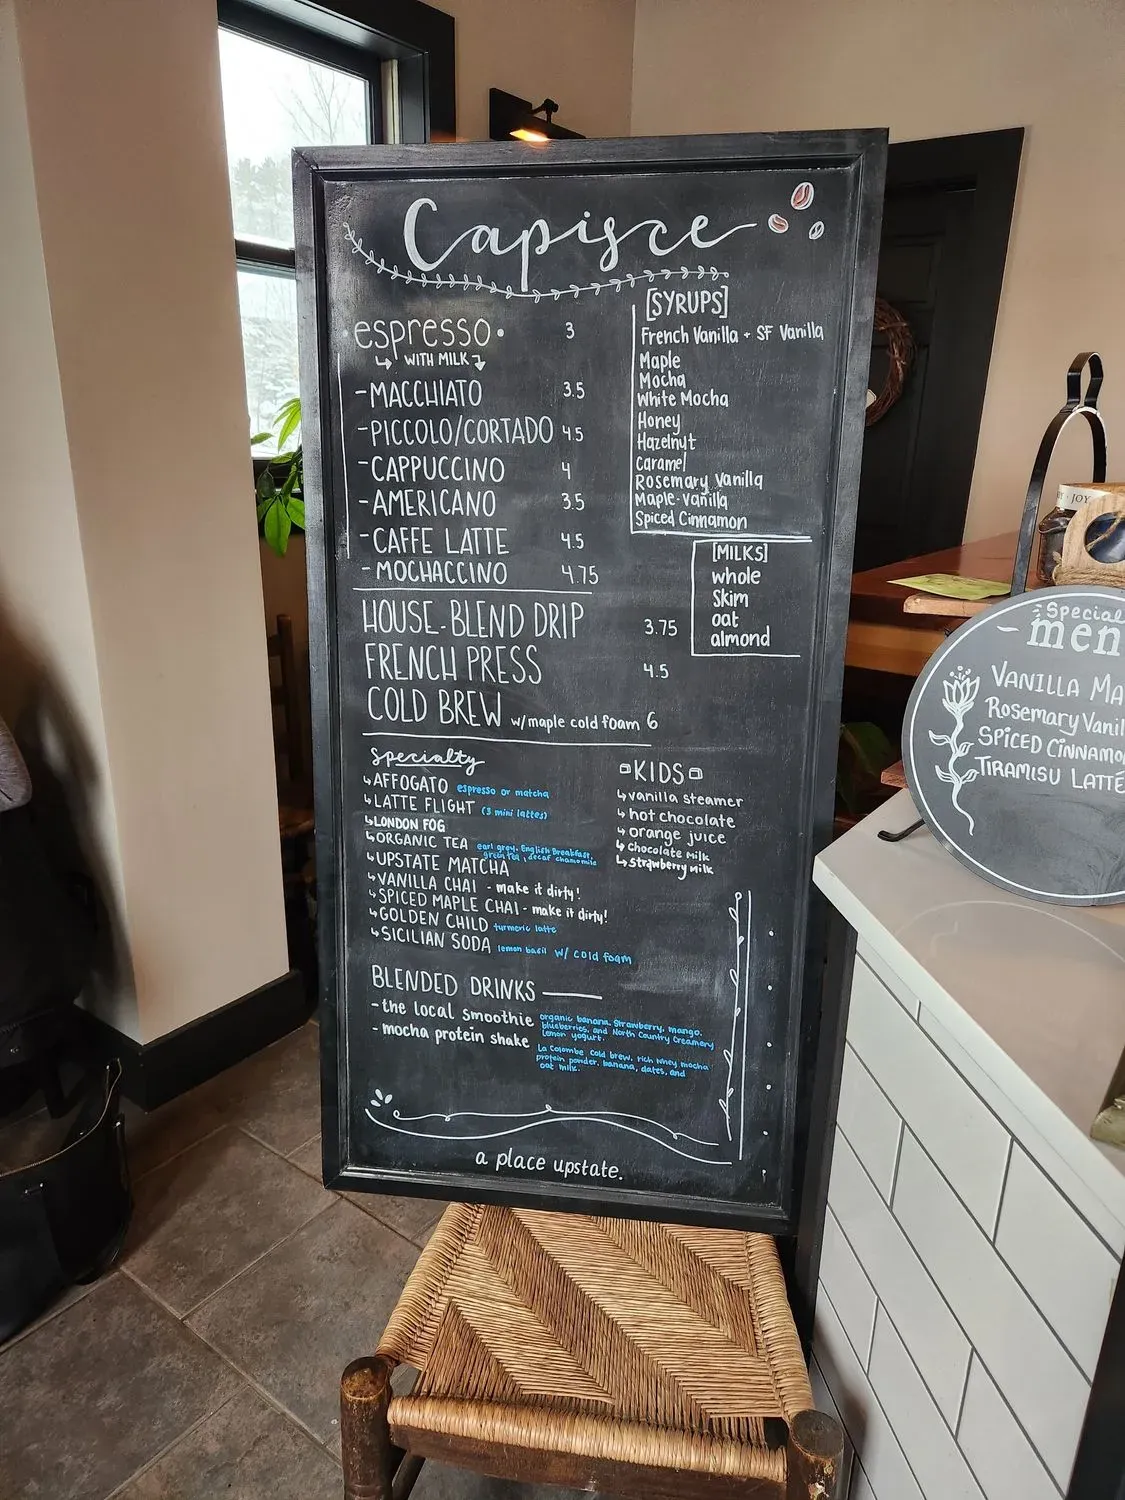 Capisce
espresso 3
WITH MILK
-MACCHIATO 3.5
-PICCOLO/CORTADO 4.5
-CAPPUCCINO 4
-AMERICANO 3.5
-CAFFE LATTE 4.5
-MOCHACCINO 4.75
HOUSE-BLEND DRIP 3.75
FRENCH PRESS 4.5
COLD BREW w/maple cold foam 6
[SYRUPS]
French Vanilla + SF Vanilla
Maple
Mocha
White Mocha
Honey
Hazelnut
Caramel
Rosemary Vanilla
Maple-Vanilla
Spiced Cinnamon
[MILKS]
whole
skim
oat
almond
Specialty
AFFOGATO espresso or matcha
LATTE FLIGHT (3 mini lattes)
LONDON FOG
ORGANIC TEA earl grey, English Breakfast,
green tea, decaf chamomile
UPSTATE MATCHA
VANILLA CHAI - make it dirty!
SPICED MAPLE CHAI - make it dirty!
GOLDEN CHILD turmeric latte
SICILIAN SODA lemon basil w/ cold foam
KIDS
vanilla steamer
hot chocolate
orange juice
chocolate milk
strawberry milk
BLENDED DRINKS
-the local smoothie organic banana, strawberry, mango,
blueberries, and North Country Creamery
lemon yogurt.
-mocha protein shake La Colombe cold brew, rich whey mocha
protein powder, banana, dates, and
oat milk.
a place upstate.
JOY
Special
men
VANILLA MA
Rosemary Vanil
SPICED Cinnamo
TIRAMISU LATTE